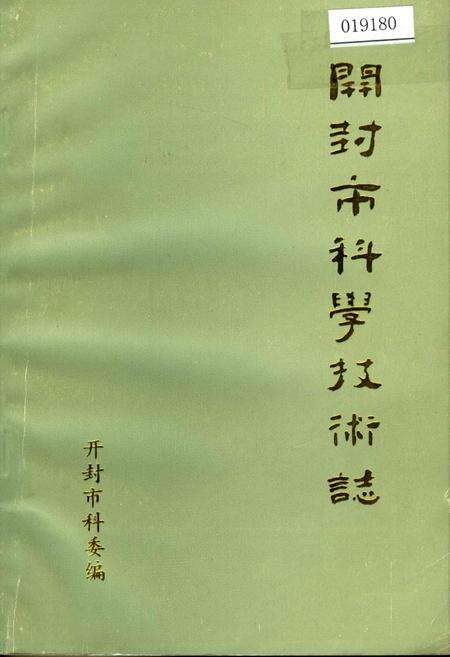 019180
開封市科學技術誌
开封市科委编